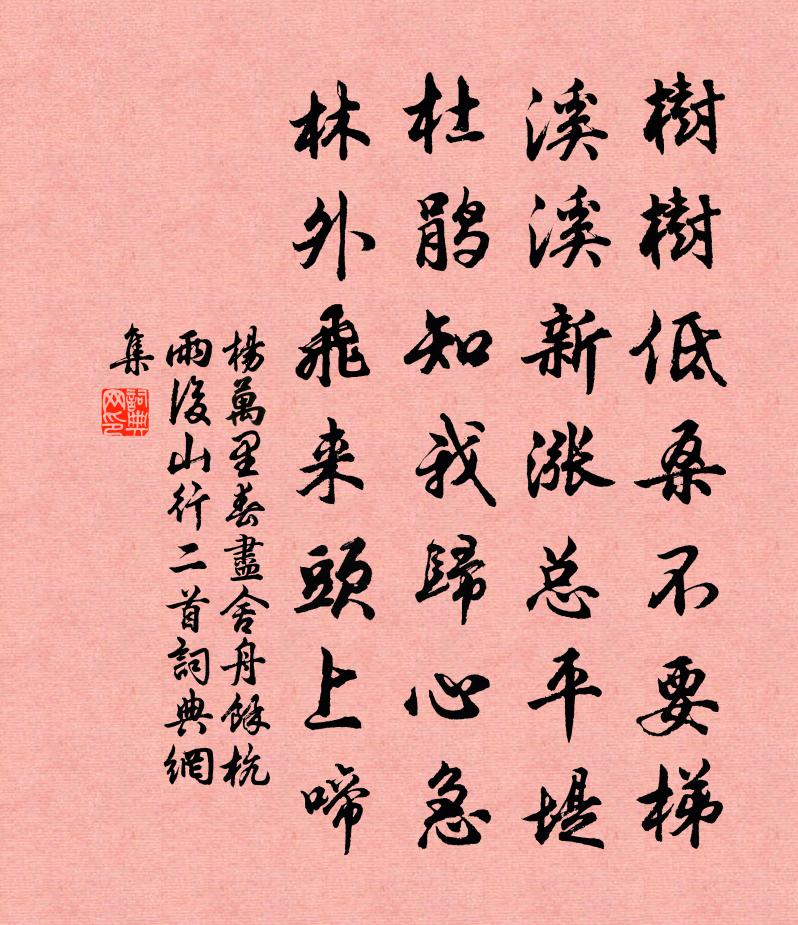 樹樹低桑不要梯
溪溪新涨总平堤
杜鹃知我歸心急
林外飛来頭上啼
楊萬里春盡舍舟餘杭
雨後山行二首詞典網
集
詞典
网印